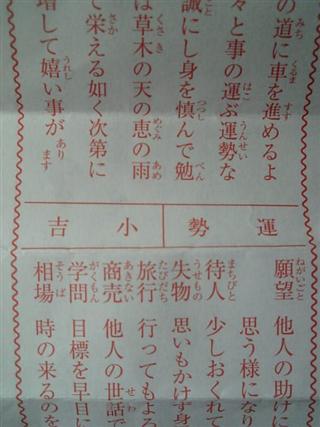 の道に車を進めるよ
々と事の運ぶ運勢な
誠にし身を慎んで勉
は草木の天の恵の雨
て栄える如く次第に
増して嬉い事があります
運勢 小吉
願望 他人の助けに
思う様になり
待人 少しおくれて
失物 思いもかけず身
旅行 行ってもよろ
商売 他人の世話で
学問 目標を早目に
相場 時の来るのを